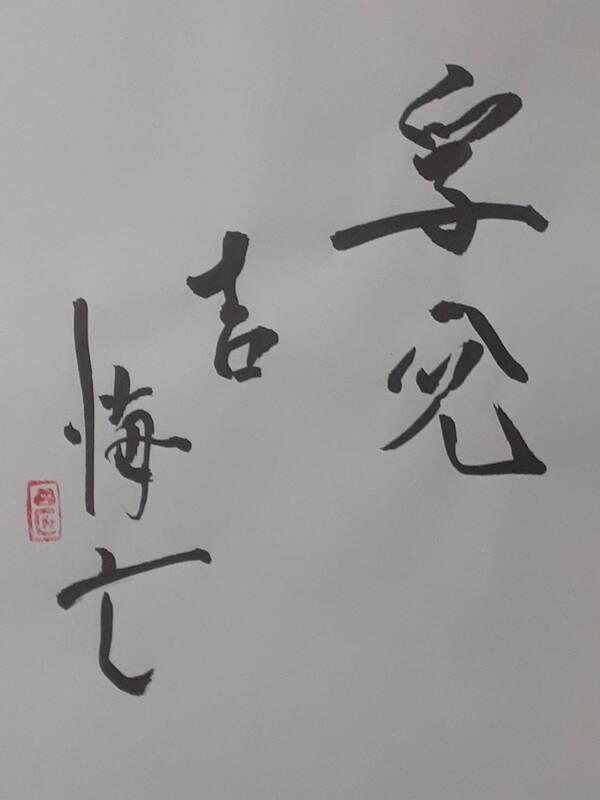 孚兌
吉
悔亡